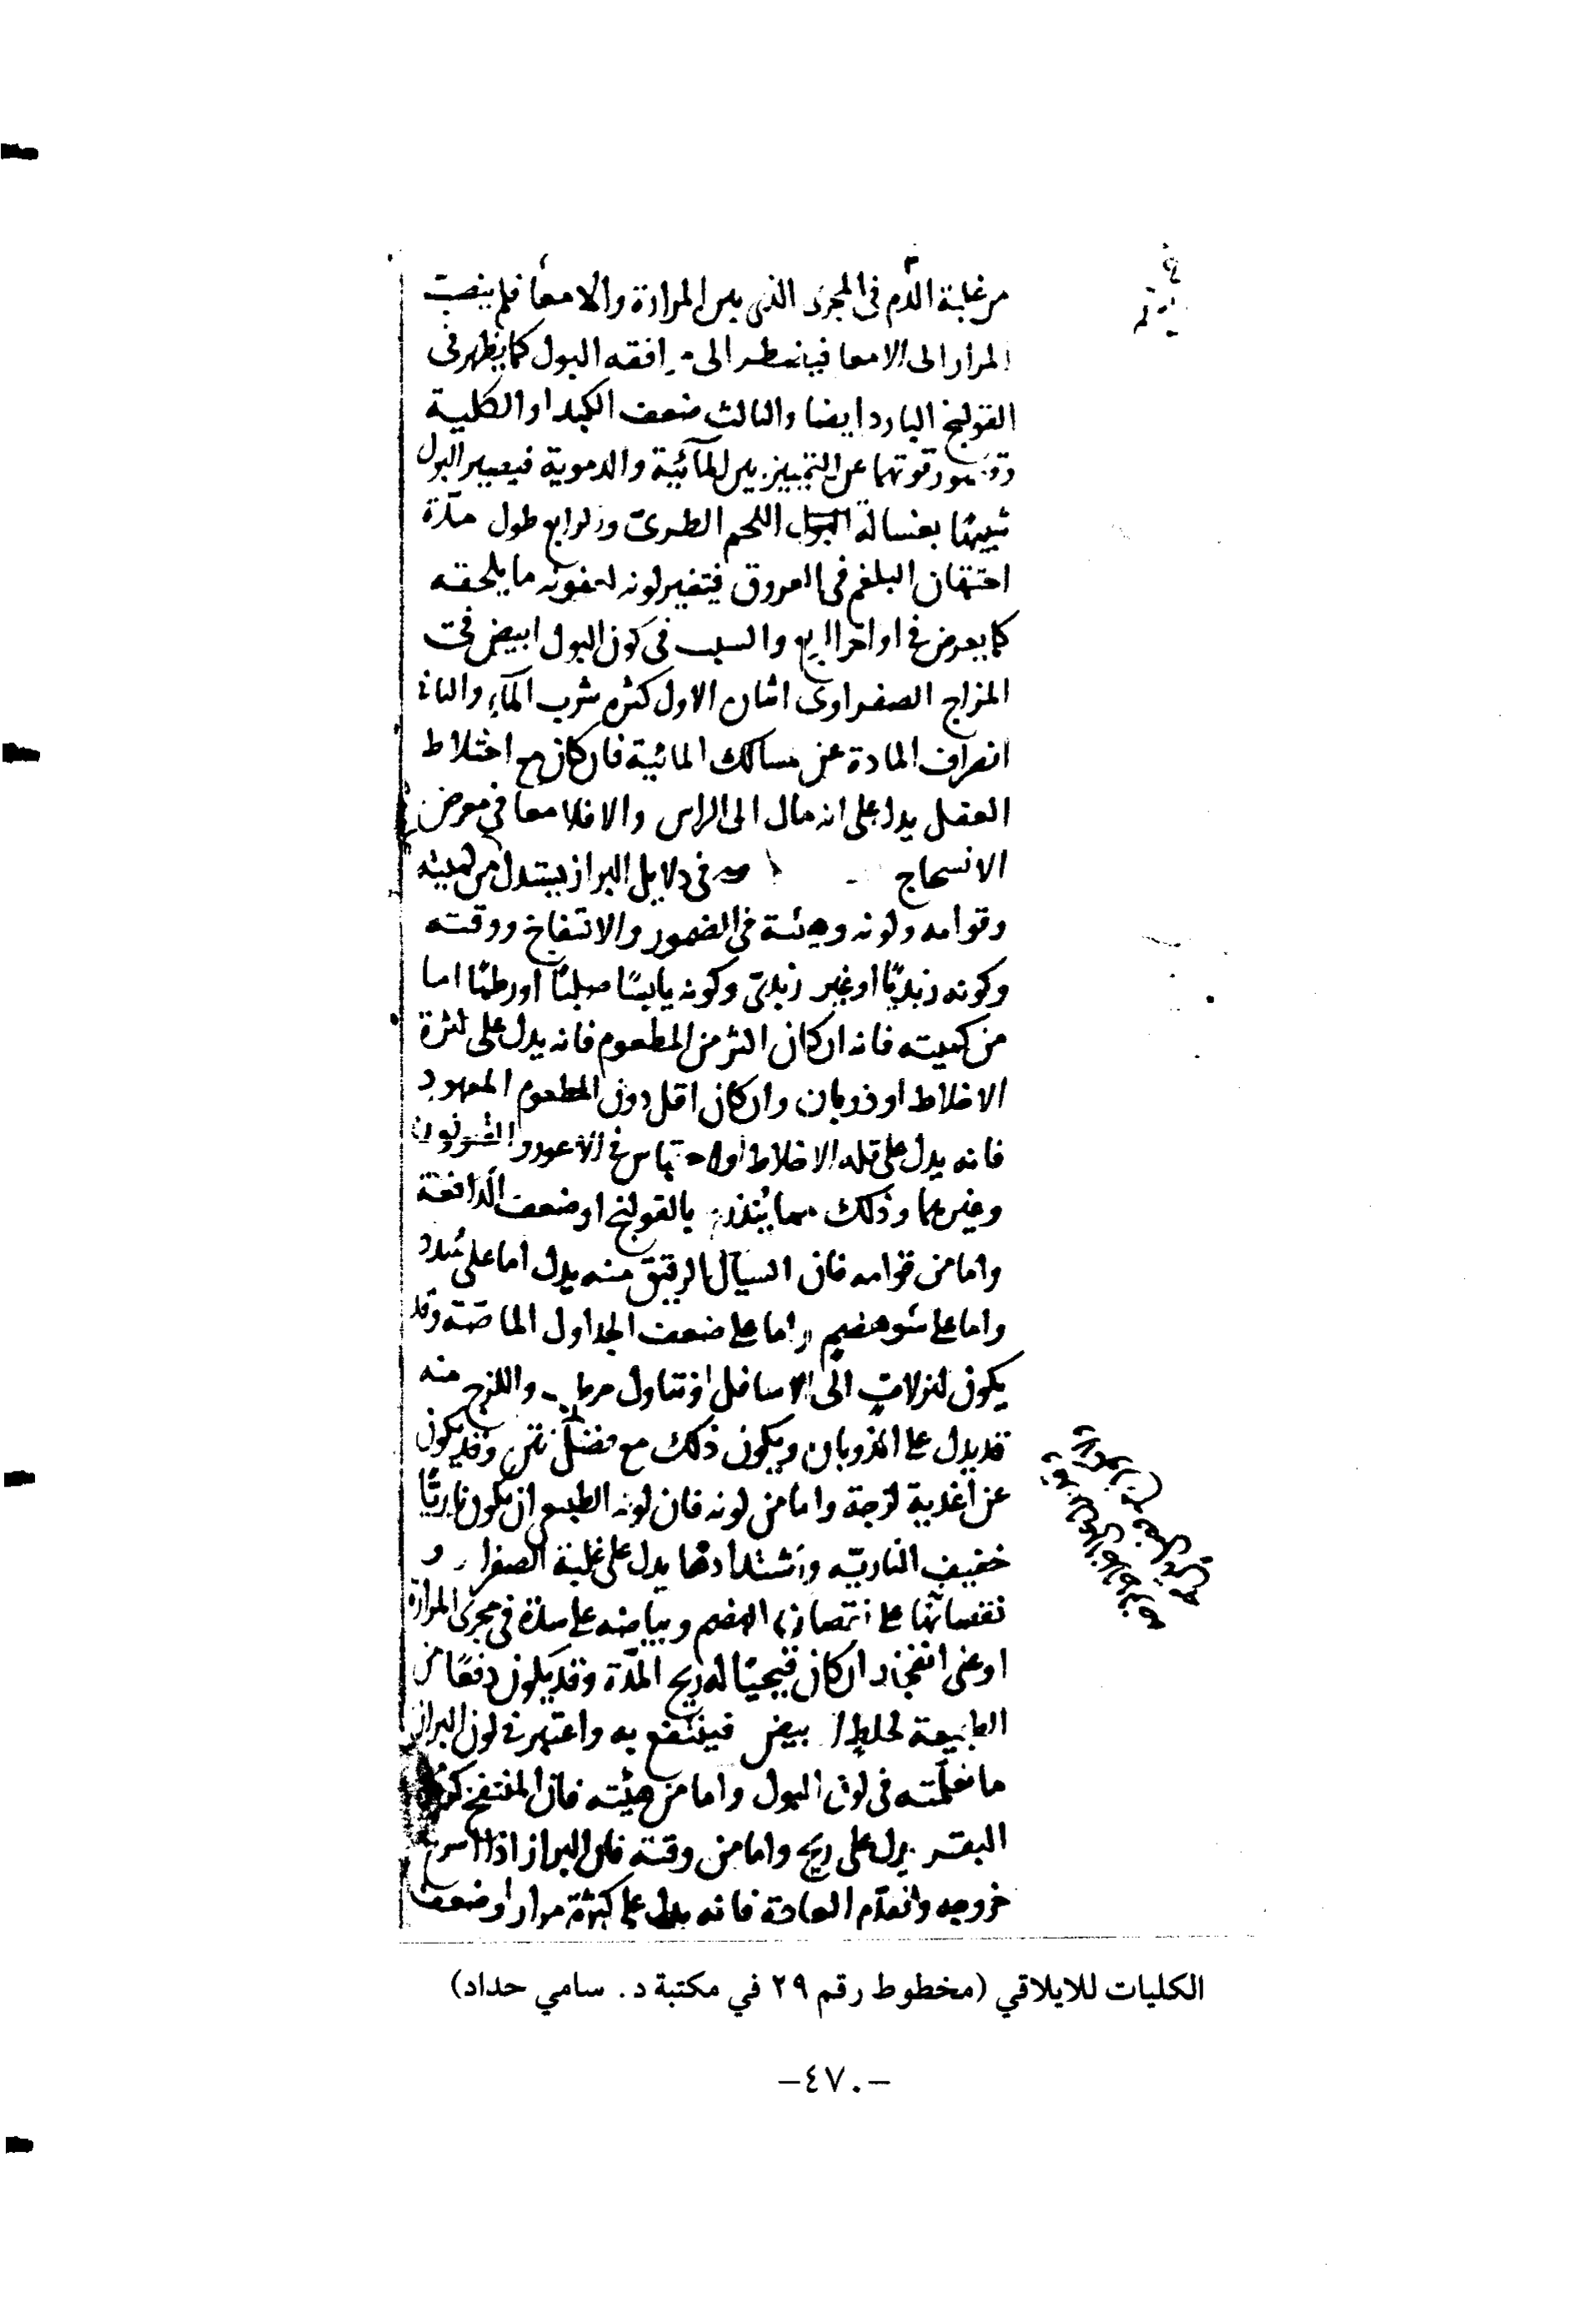 من غلبة الدم فى المجرى الذى بين المرارة والامعا فلم ينصب
المرار الى الامعا فيضطر الى مرافقه البول كما يظهر فى
القولنج البارد ايضا والثالث ضعف الكبد او الكلية
وقصور قوتهما عن التمييز بين المآئية والدموية فيصير البول
شبيها بغسالة اللحم الطرىّ والرابع طول مدّة
احتقان البلغم فى العروق فيتغير لونه لعفونه ما يلحقه
كما يعرض فى اواخر والسبب فى كون البول ابيض فى
المزاج الصفراوى اثنان الاول كثرة شرب المآء والثانى
انصراف المادة عن مسالك المائية فان كان مع اختلاط
العقل يدل على انه مال الى الراس والا فالامعا فى معرض
الانسحاج فى دلايل البراز يستدل من كميته
وقوامه ولونه وهيئته فى الضمور والانتفاخ ووقته
وكونه زبديًا او غير زبدىّ وكونه يابسًا صلبًا او رطبًا اما
من كميته فانه ان كان اكثر من المطعوم فانه يدل على كثرة
الاخلاط او ذوبان وان كان اقل دون المطعوم المعهود
فانه يدل على قله الاخلاط او احتباس فى الاعور والقولون
وغيرهما وذلك مما يُنذر بالقولنج او ضعف الدافعة
واما من قوامه فان السيآل الرقيق منه يدل اما على سُدد
واما على سُو هضمٍ واما على ضعف الجداول الماصّة وقد
يكون لنزلاتٍ الى الاسافل او تناول مرطب واللزج منه
قد يدل على الذوبان ويكون ذلك مع فضل نتن وقد يكون
عن اغدية لزجة واما من لونه فان لونه الطبيعى ان يكون ناريًا
خفيف الناريّه واشتدادها يدل على غلبة الصفرا و
نقصانها على نقصان الهضم وبياضه على سدّة فى مجرى المرارة
او عن انفجار ان كان قيحيًا له ريح المدّة وقد يكون دفعًا من
الطبيعة لخلطٍ ابيض فينتفع به واعتبر فى لون البراز
ما علّمته فى لون البول واما من هيئته فان المنتفخ
البقر يدل على ريح واما من وقته فان البراز اذا اسرع
خروجه وتقدّم العادة فانه يدل على كثرة مرار او ضعف
الكليات للايلاقي (مخطوط رقم ٢٩ في مكتبة د. سامي حداد)
–٤٧٠–